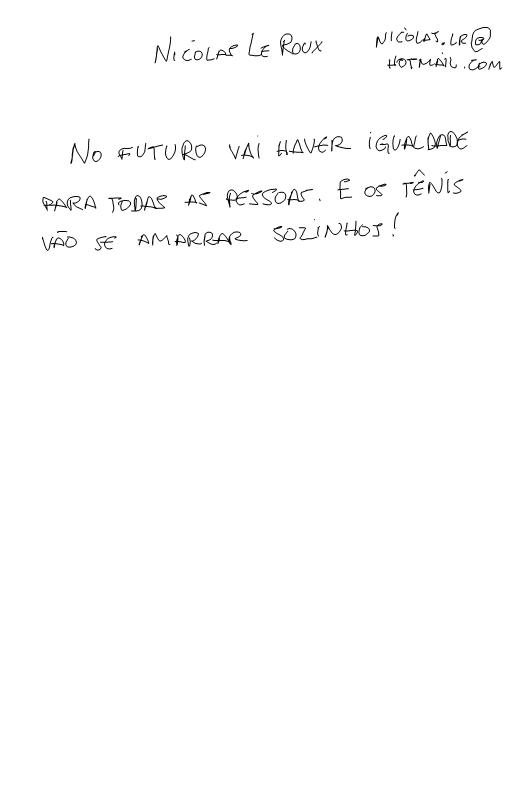 NICOLAS LE ROUX
NICOLAS.LR@
HOTMAIL.COM
NO FUTURO VAI HAVER IGUALDADE
PARA TODAS AS PESSOAS. E OS TÊNIS
VÃO SE AMARRAR SOZINHOS!